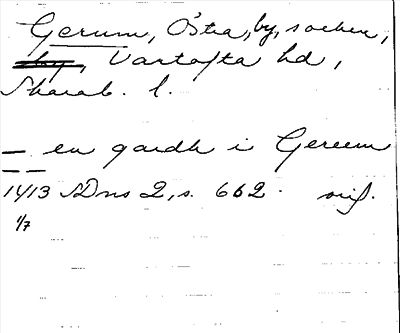 Gerum, Östra, by, socken,
by, Vartofta hd,
Skarab. l.
— en gardh i Gereem
1413 SDns 2, s. 662. orig.
1/7